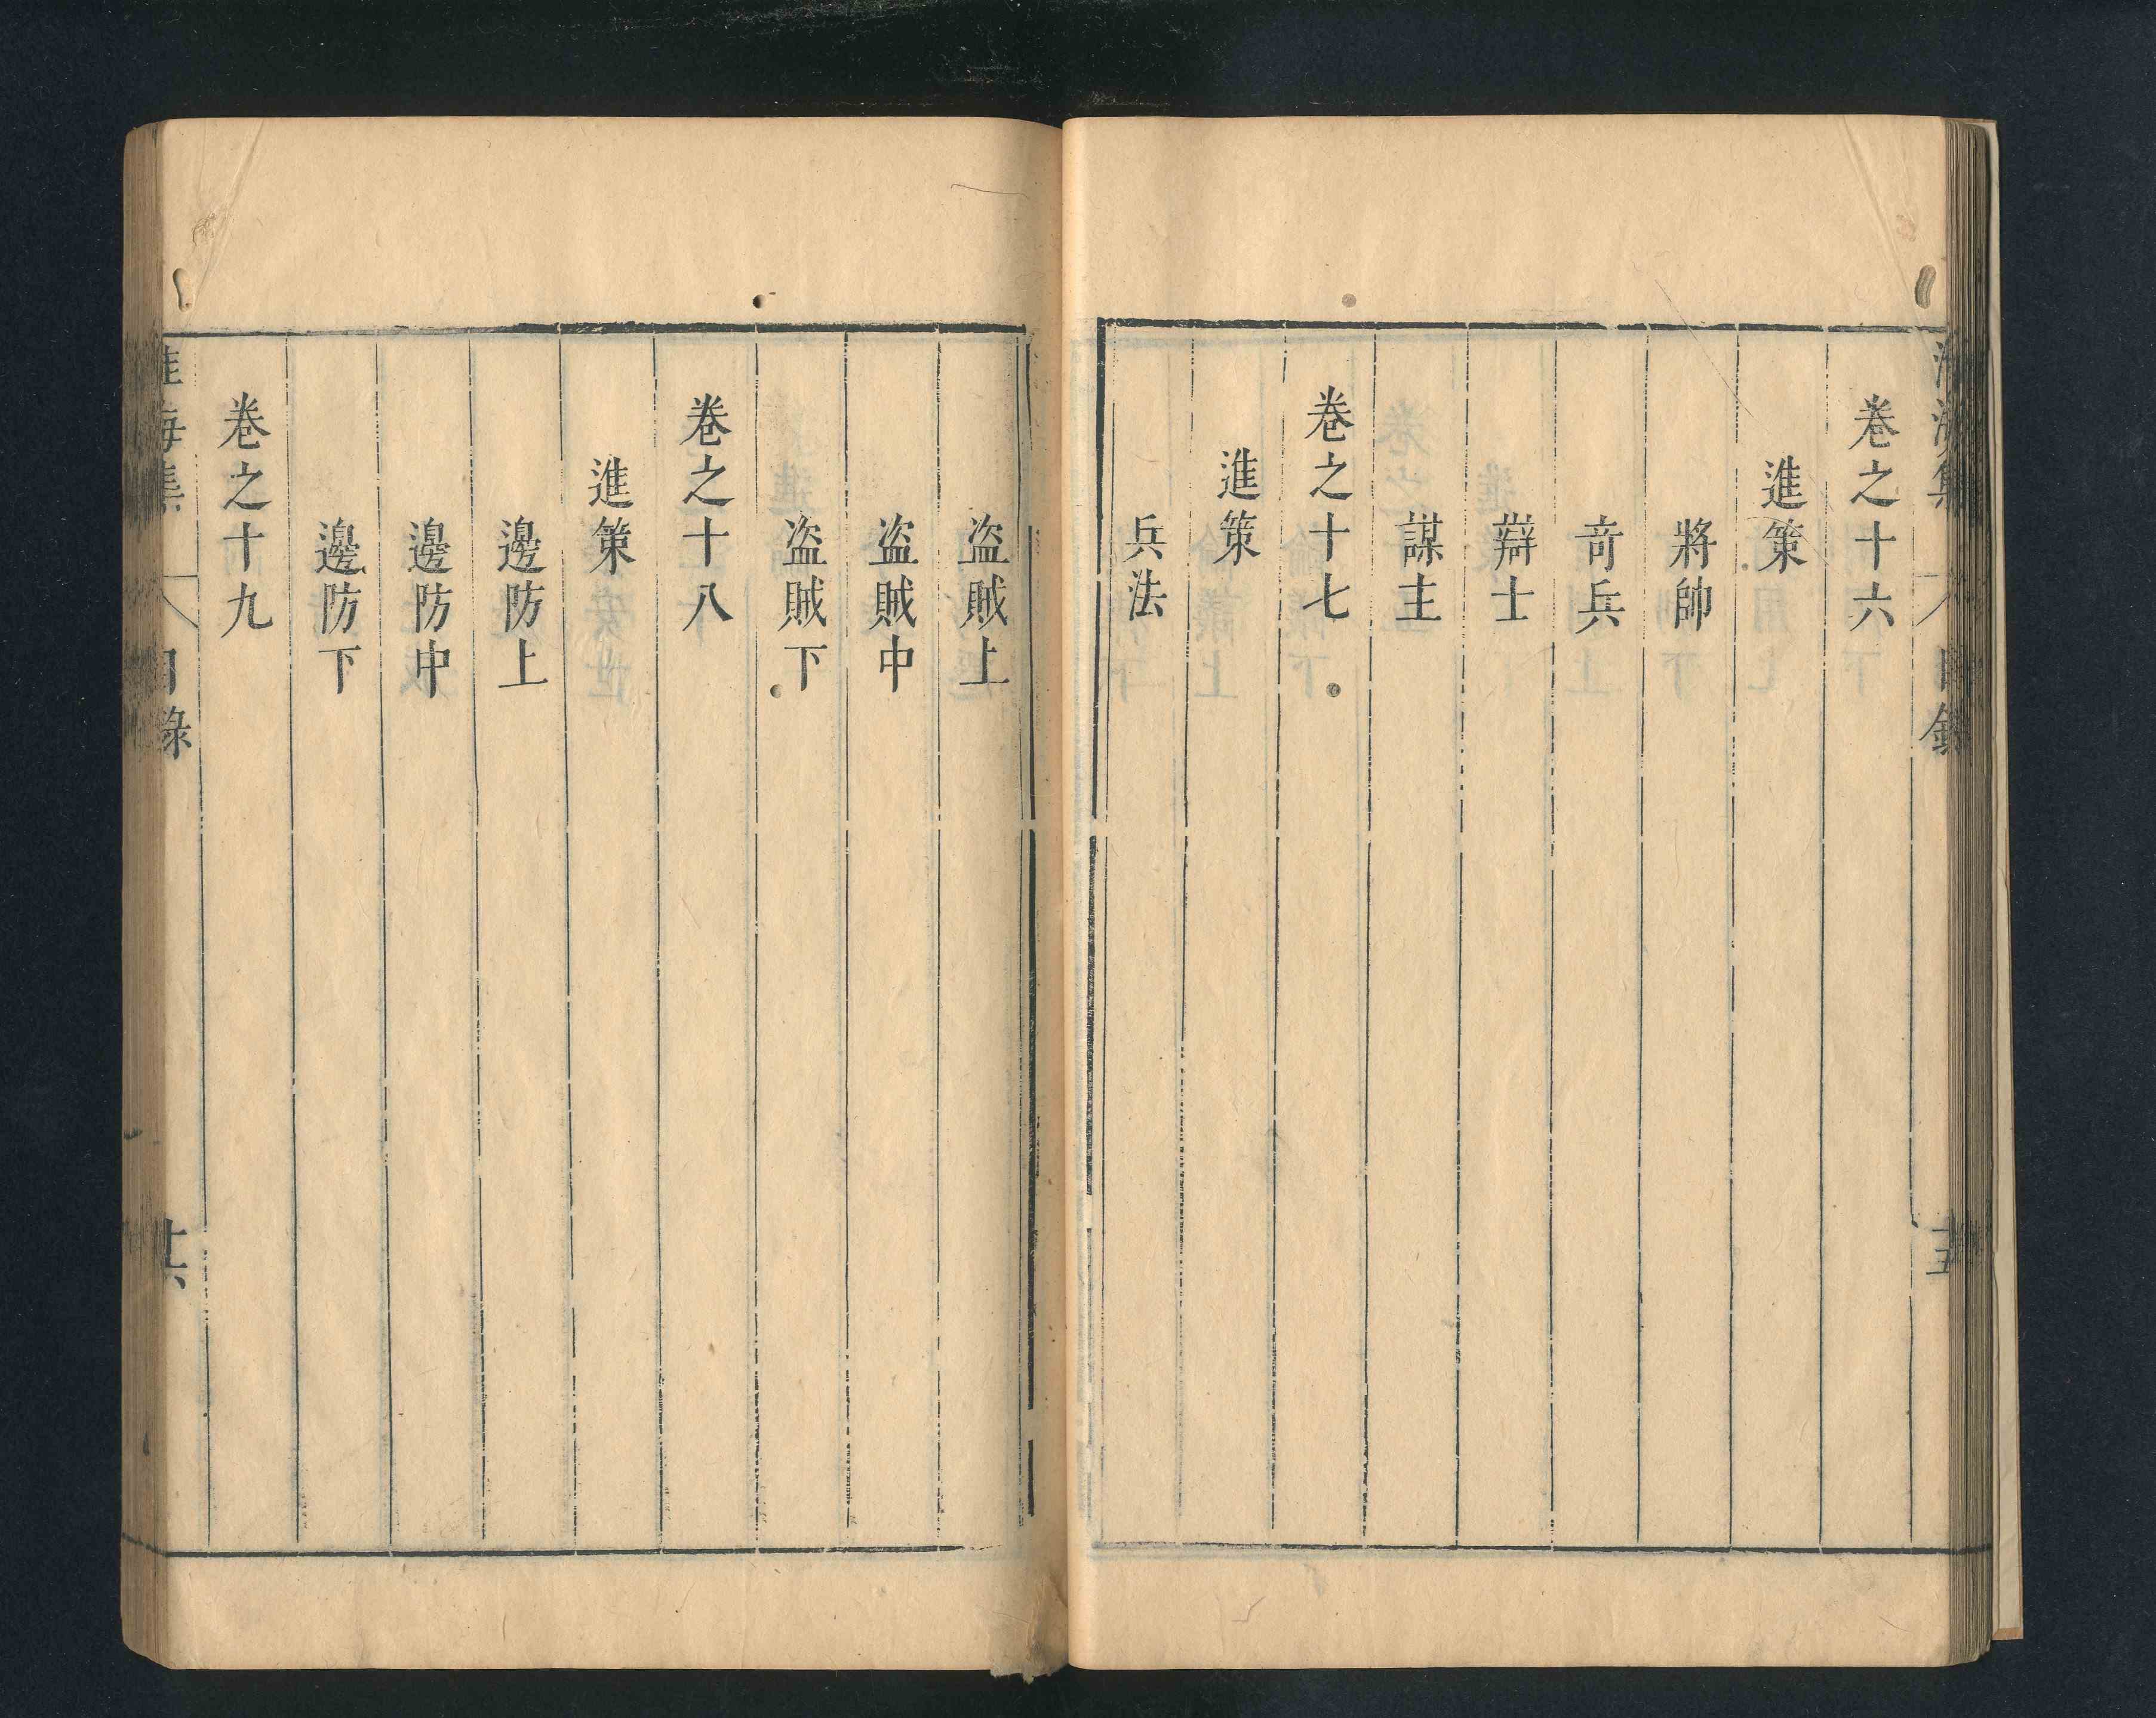 淮海集 目錄
卷之十六
進策
將帥
奇兵
辯士
謀主
卷之十七
進策
兵法
盗賊上
盗賊中
盗賊下
卷之十八
進策
邊防上
邊防中
邊防下
卷之十九
淮海集 目錄 十六